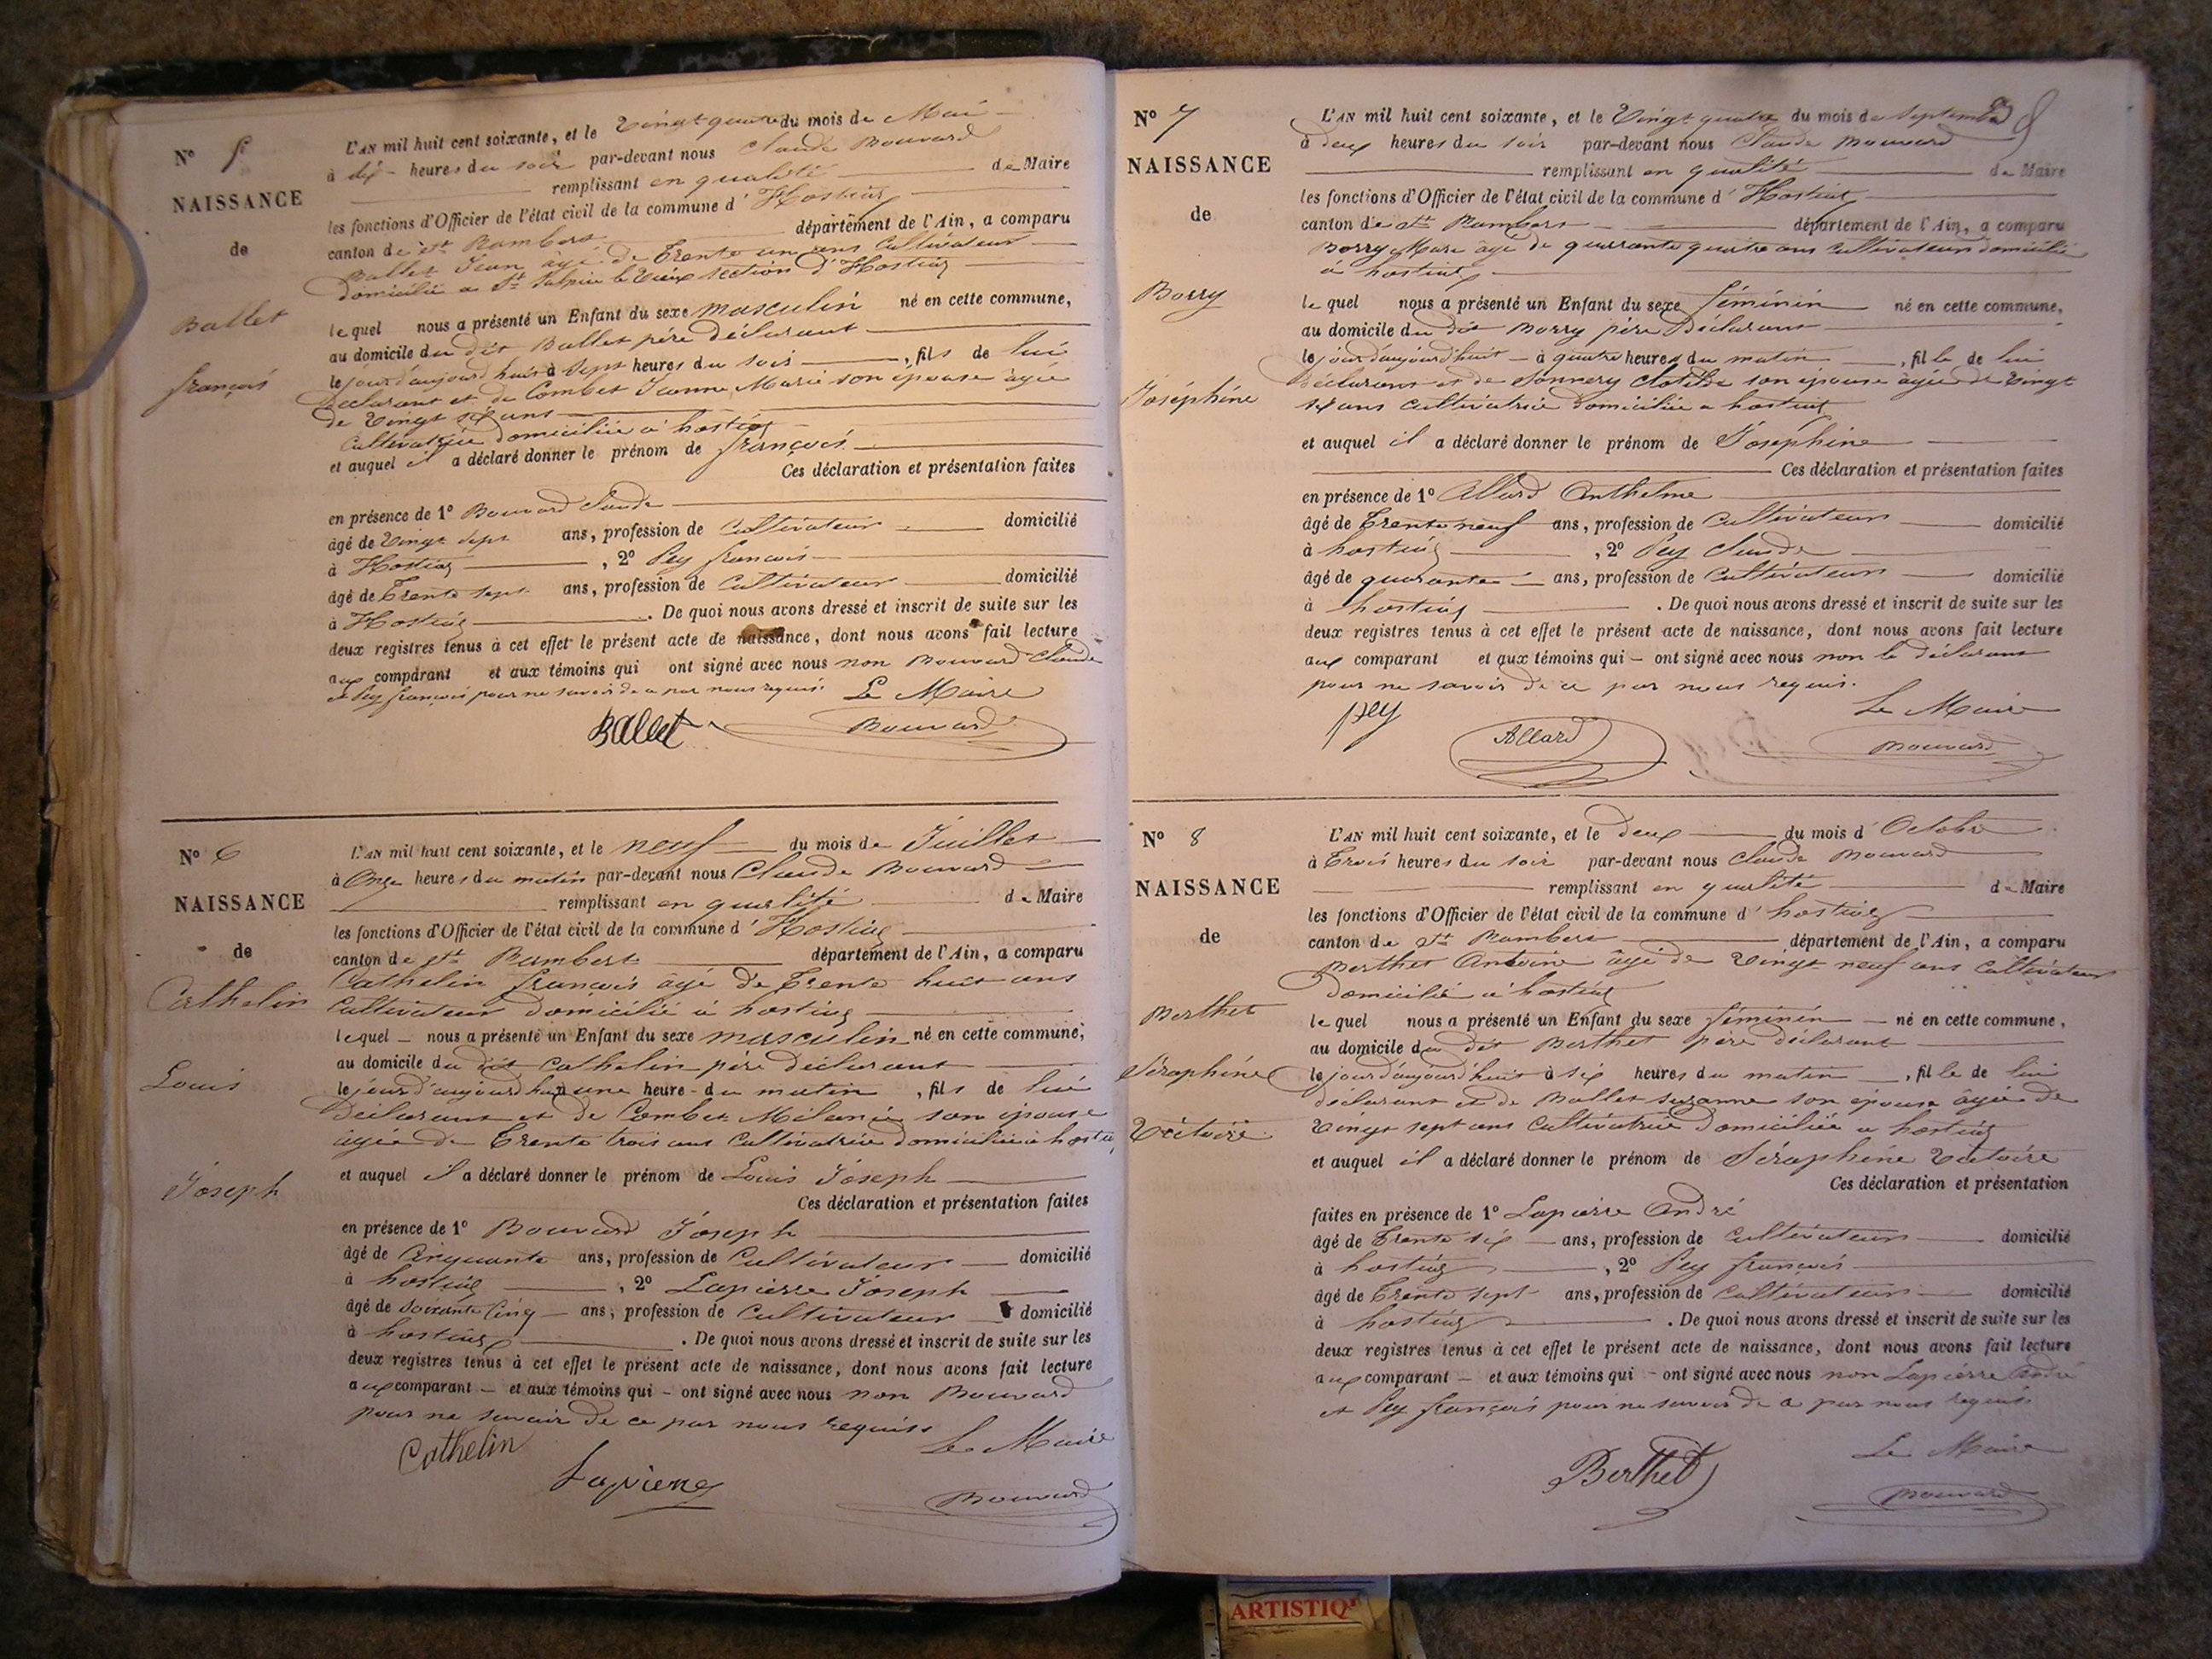 N° 5
NAISSANCE
de
Ballet
françois
L'AN mil huit cent soixante, et le Vingt quatre du mois de Mai
à dix heures du soir par-devant nous Claude Bouvard
remplissant en qualité de Maire
les fonctions d'Officier de l'état civil de la commune d'Hostiaz
canton de St Rambert département de l'Ain, a comparu
Ballet Jean âgé de Trente un ans Cultivateur
domicilié a St Sulpice le Vieux section d'Hostiaz
lequel nous a présenté un Enfant du sexe masculin né en cette commune,
au domicile du dit Ballet père déclarant
le jour d'aujourd'hui à Sept heures du soir, fils de lui
déclarant et de Combet Jeanne Marie son épouse âgée
de Vingt six ans
Cultivatrice domiciliée à hostiaz
et auquel il a déclaré donner le prénom de françois
Ces déclaration et présentation faites
en présence de 1° Bouvard Claude
âgé de Vingt sept ans, profession de Cultivateur domicilié
à Hostiaz, 2° Pey françois
âgé de Trente sept ans, profession de Cultivateur domicilié
à Hostiaz. De quoi nous avons dressé et inscrit de suite sur les
deux registres tenus à cet effet le présent acte de naissance, dont nous avons fait lecture
aux comparant et aux témoins qui ont signé avec nous non Bouvard Claude
et Pey françois pour ne savoir de ce par nous requis. Le Maire
Ballet Bouvard
N° 6
NAISSANCE
de
Cathelin
Louis
Joseph
L'AN mil huit cent soixante, et le neuf du mois de Juillet
à Onze heures du matin par-devant nous Claude Bouvard
remplissant en qualité de Maire
les fonctions d'Officier de l'état civil de la commune d'Hostiaz
canton de St Rambert département de l'Ain, a comparu
Cathelin françois âgé de Trente huit ans
Cultivateur domicilié à hostiaz
lequel nous a présenté un Enfant du sexe masculin né en cette commune,
au domicile du dit Cathelin père déclarant
le jour d'aujourd'hui à une heure du matin, fils de lui
déclarant et de Combet Mélanie son épouse
âgée de Trente trois ans Cultivatrice domiciliée à hostia
et auquel il a déclaré donner le prénom de Louis Joseph
Ces déclaration et présentation faites
en présence de 1° Bouvard Joseph
âgé de Cinquante ans, profession de Cultivateur domicilié
à hostiaz, 2° Lapierre Joseph
âgé de Soixante Cinq ans, profession de Cultivateur domicilié
à hostiaz. De quoi nous avons dressé et inscrit de suite sur les
deux registres tenus à cet effet le présent acte de naissance, dont nous avons fait lecture
aux comparant et aux témoins qui ont signé avec nous non Bouvard
pour ne savoir de ce par nous requis. Le Maire
Cathelin
Lapierre Bouvard
N° 7
NAISSANCE
de
Borry
Joséphine
L'AN mil huit cent soixante, et le Vingt quatre du mois de Septembre
à deux heures du soir par-devant nous Claude Bouvard
remplissant en qualité de Maire
les fonctions d'Officier de l'état civil de la commune d'Hostiaz
canton de St Rambert département de l'Ain, a comparu
Borry Marc âgé de quarante quatre ans cultivateur domicilié
à hostiaz
lequel nous a présenté un Enfant du sexe féminin né en cette commune,
au domicile du dit Borry père Déclarant
le jour d'aujourd'huit à quatre heures du matin, fille de lui
Déclarant et de Sonnery Clotilde son épouse âgée de Vingt
six ans cultivatrice domiciliée a hostiaz
et auquel il a déclaré donner le prénom de Joséphine
Ces déclaration et présentation faites
en présence de 1° Allard Anthelme
âgé de Trente neuf ans, profession de Cultivateur domicilié
à hostiaz, 2° Pey Claude
âgé de quarante ans, profession de Cultivateur domicilié
à hostiaz. De quoi nous avons dressé et inscrit de suite sur les
deux registres tenus à cet effet le présent acte de naissance, dont nous avons fait lecture
aux comparant et aux témoins qui ont signé avec nous non le déclarant
pour ne savoir de ce par nous requis.
Le Maire
Pey Allard Bouvard
N° 8
NAISSANCE
de
Berthet
Séraphine
Victoire
L'AN mil huit cent soixante, et le deux du mois d'Octobre
à Trois heures du soir par-devant nous Claude Bouvard
remplissant en qualité de Maire
les fonctions d'Officier de l'état civil de la commune d'hostiaz
canton de St Rambert département de l'Ain, a comparu
Berthet Antoine âgé de Vingt neuf ans Cultivateur
domicilié à hostiaz
lequel nous a présenté un Enfant du sexe féminin né en cette commune,
au domicile du dit Berthet père déclarant
le jour d'aujourd'huit à six heures du matin, fille de lui
déclarant et de Ballet Suzanne son épouse âgée de
Vingt sept ans Cultivatrice domiciliée a hostiaz
et auquel il a déclaré donner le prénom de Séraphine Victoire
Ces déclaration et présentation
faites en présence de 1° Lapierre André
âgé de Trente six ans, profession de Cultivateur domicilié
à hostiaz, 2° Pey françois
âgé de Trente sept ans, profession de Cultivateur domicilié
à hostiaz. De quoi nous avons dressé et inscrit de suite sur les
deux registres tenus à cet effet le présent acte de naissance, dont nous avons fait lecture
aux comparant et aux témoins qui ont signé avec nous non Lapierre André
et Pey françois pour ne savoir de ce par nous requis
Le Maire
Berthet Bouvard
ARTISTIQ